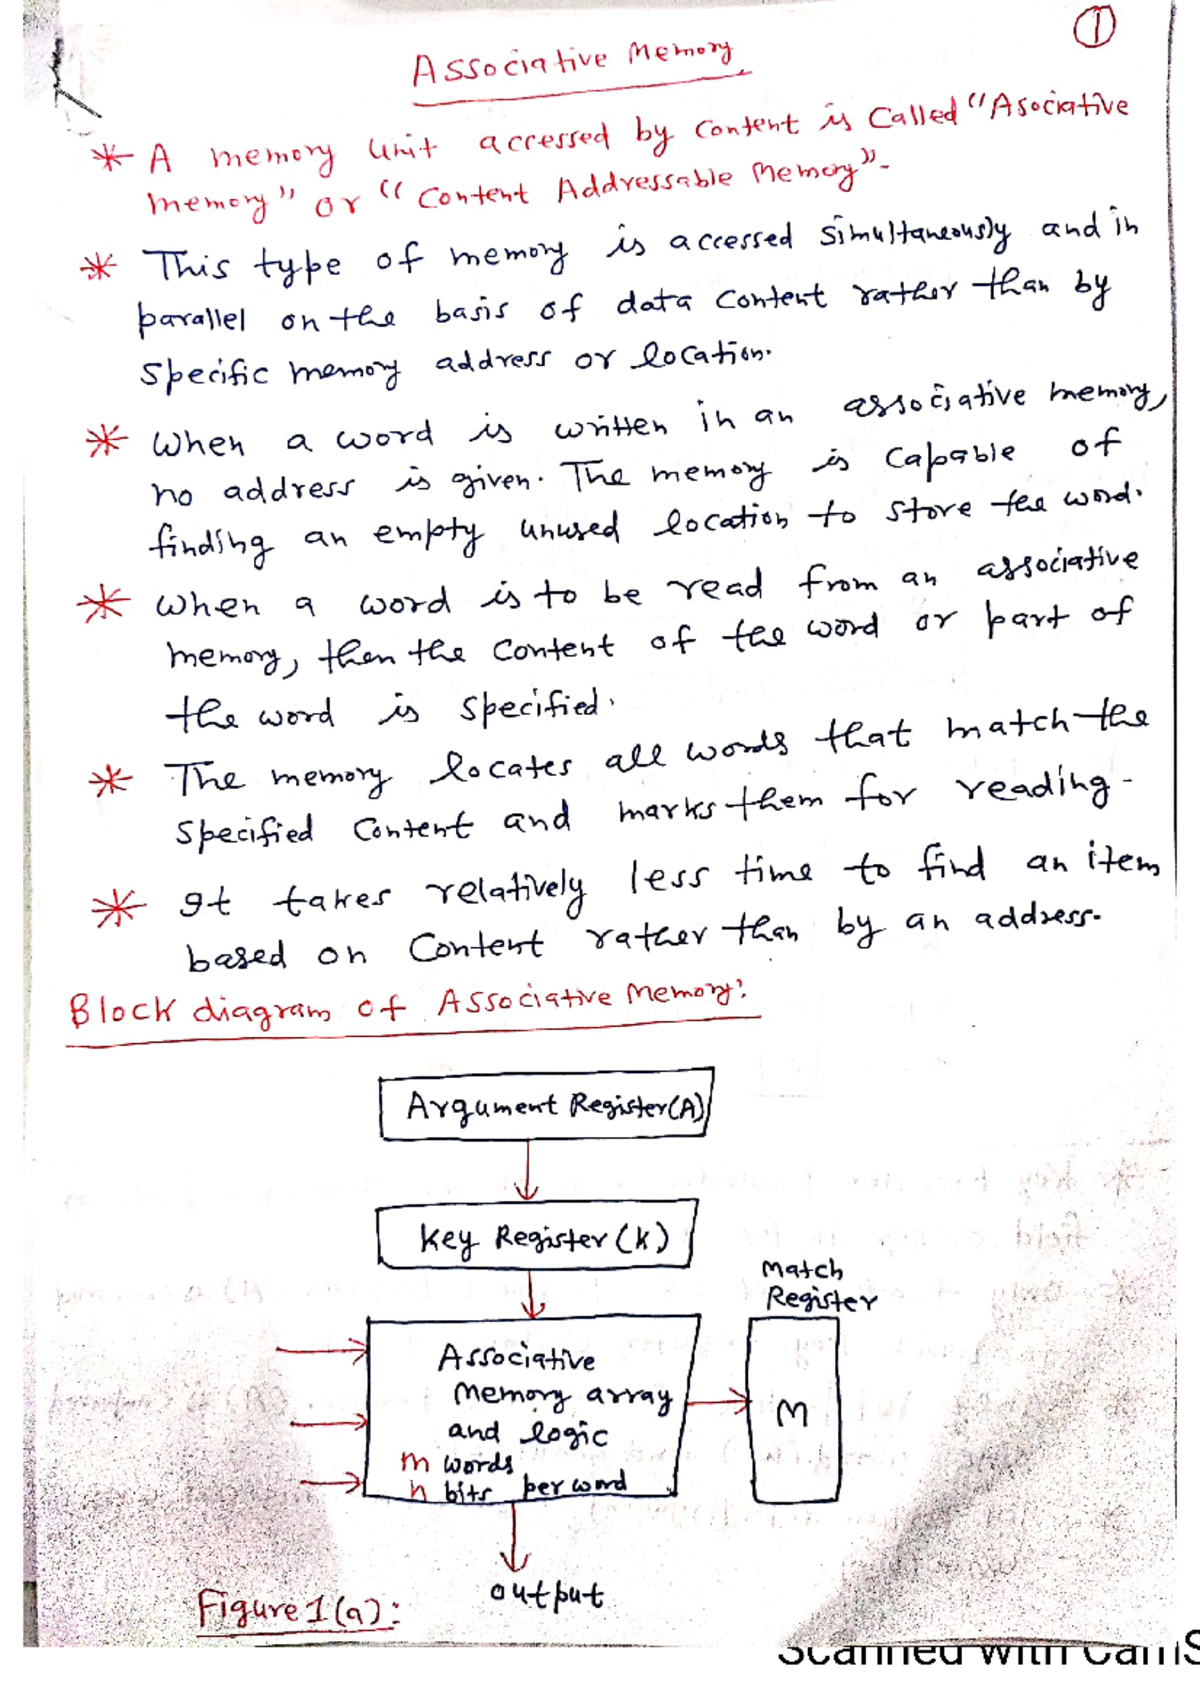 ①
Associative Memory
* A memory unit accessed by content is called "Asociative
memory" or "Content Addressable Memory".
* This type of memory is accessed simultaneously and in
parallel on the basis of data content rather than by
specific memory address or location.
* When a word is written in an associative memory,
no address is given. The memory is capable of
finding an empty unused location to store the word.
* When a word is to be read from an associative
memory, then the content of the word or part of
the word is specified.
* The memory locates all words that match the
specified content and marks them for reading.
* It takes relatively less time to find an item
based on content rather than by an address.
Block diagram of Associative Memory:
Argument Register(A)
Key Register (K)
Match
Register
Associative
memory array
and logic
m words
n bits per word
M
output
Figure 1(a):
Scanned with CamS